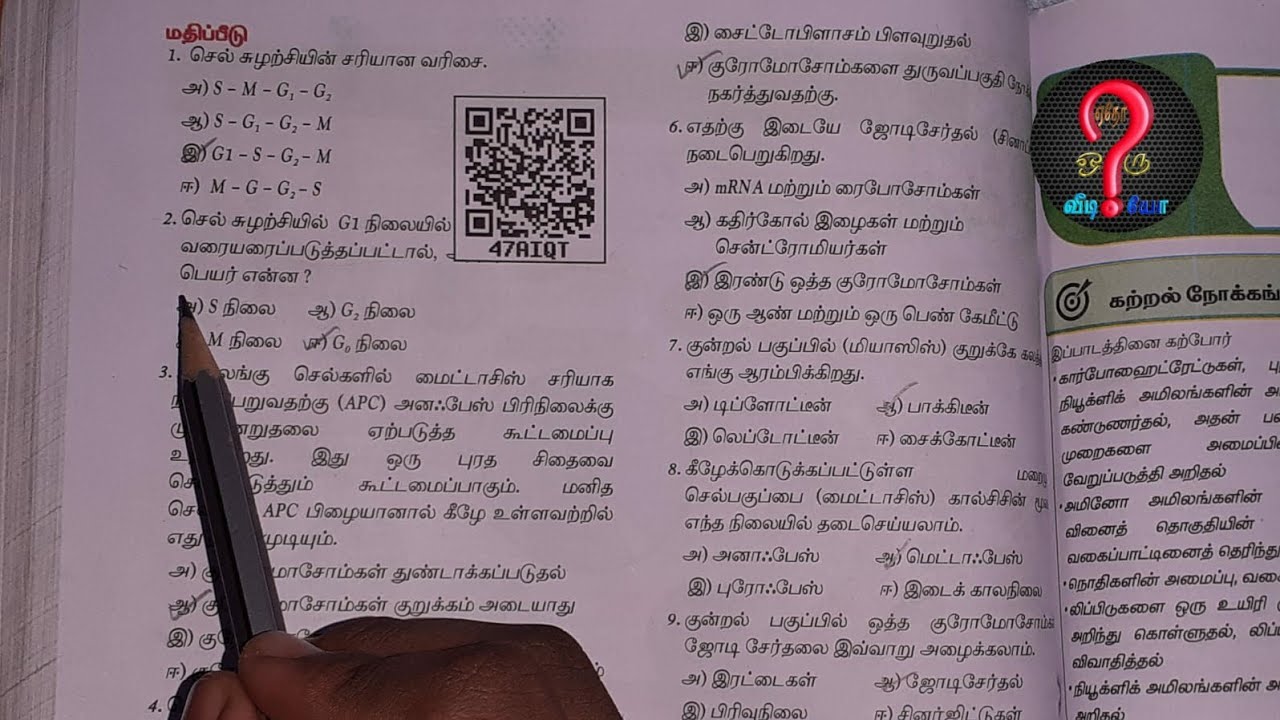 மதிப்பீடு
1. செல் சுழற்சியின் சரியான வரிசை.
அ) S – M – G₁ – G₂
ஆ) S – G₁ – G₂ – M
இ) G1 – S – G₂ – M
ஈ) M – G – G₂ – S
2. செல் சுழற்சியில் G1 நிலையில்
வரையரைப்படுத்தப்பட்டால்,
பெயர் என்ன ?
அ) S நிலை ஆ) G₂ நிலை
M நிலை ஈ) G₀ நிலை
3. செல்களில் மைட்டாசிஸ் சரியாக
(APC) அனஃபேஸ் பிரிநிலைக்கு
ஏற்படுத்த கூட்டமைப்பு
இது ஒரு புரத சிதைவை
கூட்டமைப்பாகும். மனித
APC பிழையானால் கீழே உள்ளவற்றில்
முடியும்.
அ) துண்டாக்கப்படுதல்
ஆ) குறுக்கம் அடையாது
இ)
ஈ)
4.
47AIQT
இ) சைட்டோபிளாசம் பிளவுறுதல்
ஈ) குரோமோசோம்களை துருவப்பகுதி
நகர்த்துவதற்கு.
6. எதற்கு இடையே ஜோடிசேர்தல்
நடைபெறுகிறது.
அ) mRNA மற்றும் ரைபோசோம்கள்
ஆ) கதிர்கோல் இழைகள் மற்றும்
சென்ட்ரோமியர்கள்
இ) இரண்டு ஒத்த குரோமோசோம்கள்
ஈ) ஒரு ஆண் மற்றும் ஒரு பெண் கேமீட்டு
7. குன்றல் பகுப்பில் (மியாஸிஸ்) குறுக்கே
எங்கு ஆரம்பிக்கிறது.
அ) டிப்ளோட்டீன் ஆ) பாக்கிடீன்
இ) லெப்டோட்டீன் ஈ) சைக்கோட்டீன்
8. கீழேக்கொடுக்கப்பட்டுள்ள
செல்பகுப்பை (மைட்டாசிஸ்) கால்சிசின்
எந்த நிலையில் தடைசெய்யலாம்.
அ) அனாஃபேஸ் ஆ) மெட்டாஃபேஸ்
இ) புரோஃபேஸ் ஈ) இடைக் காலநிலை
9. குன்றல் பகுப்பில் ஒத்த
ஜோடி சேர்தலை இவ்வாறு அழைக்கலாம்.
அ) இரட்டைகள் ஆ) ஜோடிசேர்தல்
இ) பிரிவுநிலை ஈ) சினர்ஜிட்டுகள்
ஏதோ
ஒரு
வீடியோ
கற்றல்
இப்பாடத்தினை கற்போர்
• கார்போஹைட்ரேட்டுகள்,
நியூக்ளிக் அமிலங்களின்
கண்டுணர்தல், அதன்
முறைகளை
வேறுபடுத்தி அறிதல்
• அமினோ அமிலங்களின்
வினைத் தொகுதியின்
வகைப்பாட்டினைத்
• நொதிகளின் அமைப்பு,
• லிப்பிடுகளை ஒரு உயிரி
அறிந்து கொள்ளுதல்,
விவாதித்தல்
• நியூக்ளிக் அமிலங்களின்
அறிதல்